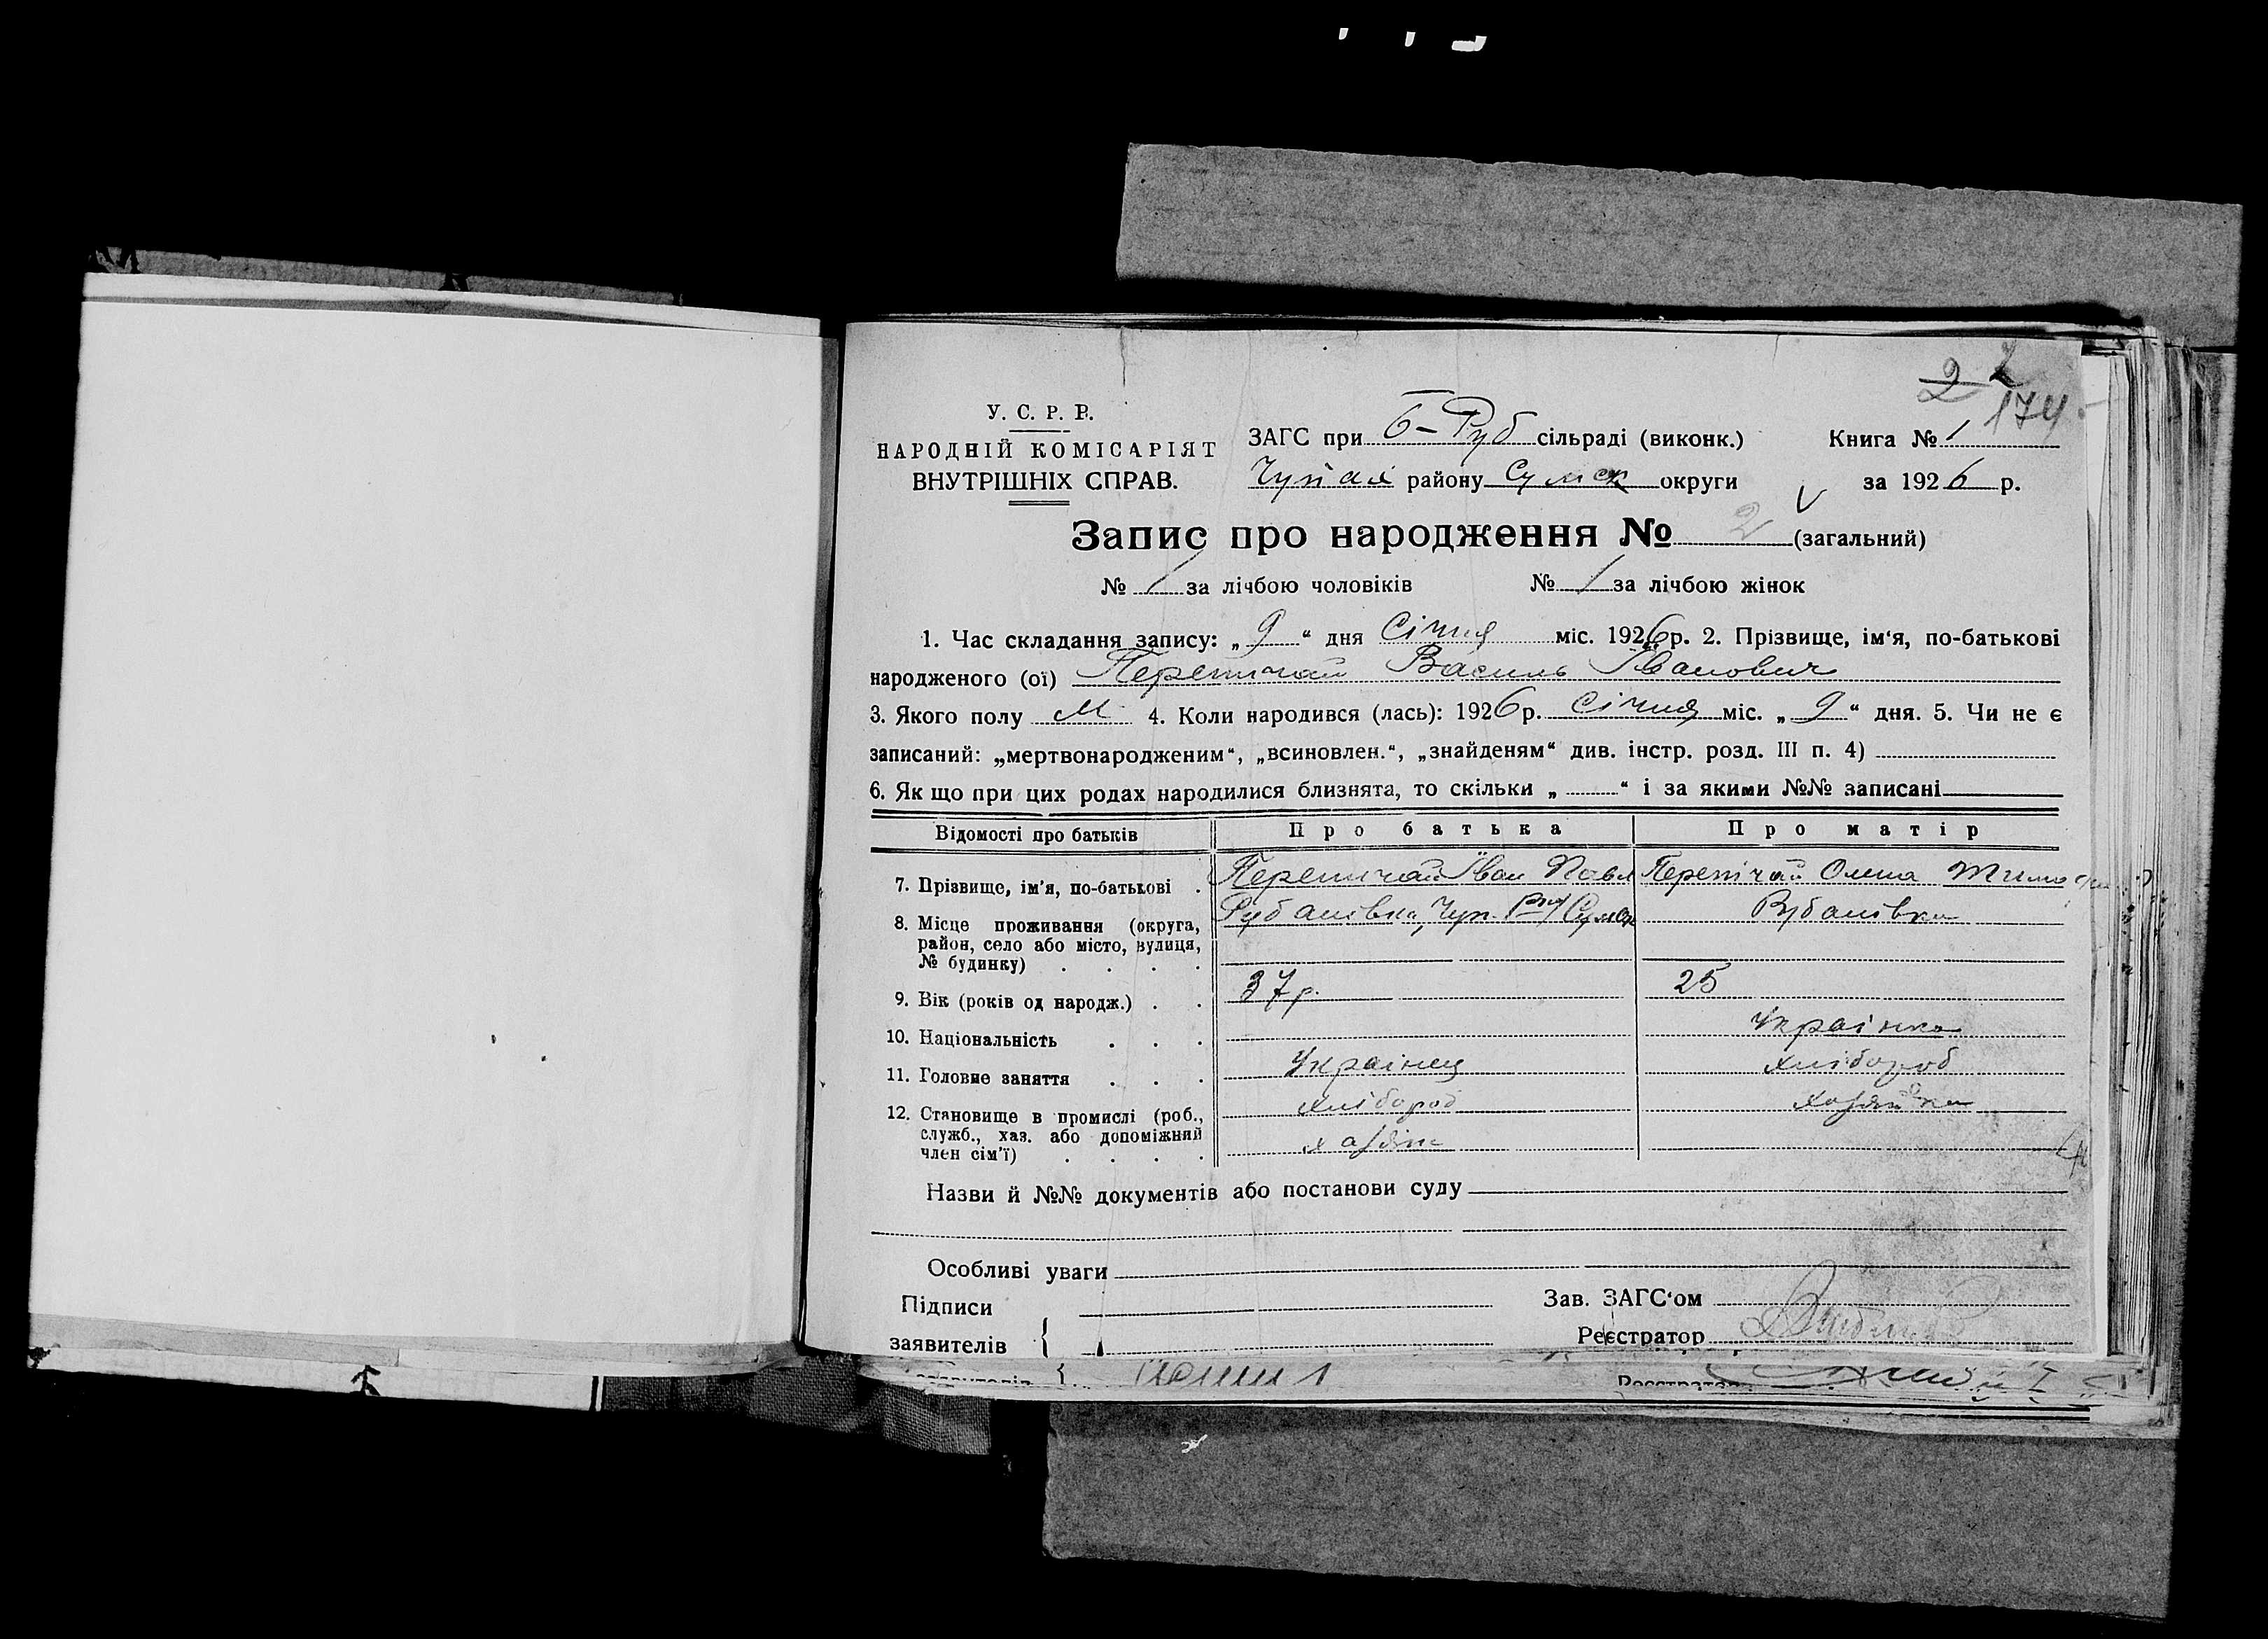 2 2
174
У. С. Р. Р.
НАРОДНІЙ КОМІСАРІЯТ
ВНУТРІШНІХ СПРАВ.
ЗАГС при Б-Руб сільраді (виконк.) Книга № 1
району Сумск округи за 1926 р.
Запис про народження № 2 (загальний)
№ 1 за лічбою чоловіків № 1 за лічбою жінок
1. Час складання запису: „ 9 “ дня Січня міс. 1926 р. 2. Прізвище, ім‘я, по-батькові
народженого (ої) Перепичай Василь Іванович
3. Якого полу М 4. Коли народився (лась): 1926 р. Січня міс. „ 9 “ дня. 5. Чи не є
записаний: „мертвонародженим“, „всиновлен.“, „знайденям“ див. інстр. розд. III п. 4)
6. Як що при цих родах народилися близнята, то скільки „ “ і за якими №№ записані
Відомості про батьків Про батька Про матір
7. Прізвище, ім'я, по-батькові . Перепичай Іван Павл Перепічай
8. Місце проживання (округа, Рубанівка, Чуп. Сумск Рубанівка
район, село або місто, вулиця,
№ будинку) . . . .
9. Вік (років од народж.) . . 37 р. 25
10. Національність . . . Українка
11. Головне заняття . . . Українец хлібороб
12. Становище в промислі (роб., хлібороб хазяйка
служб., хаз. або допоміжний хазяін
член сім'ї) . . . .
Назви й №№ документів або постанови суду
Особливі уваги
Підписи Зав. ЗАГС‘ом
заявителів { Реєстратор
заявителів { Реєстратор